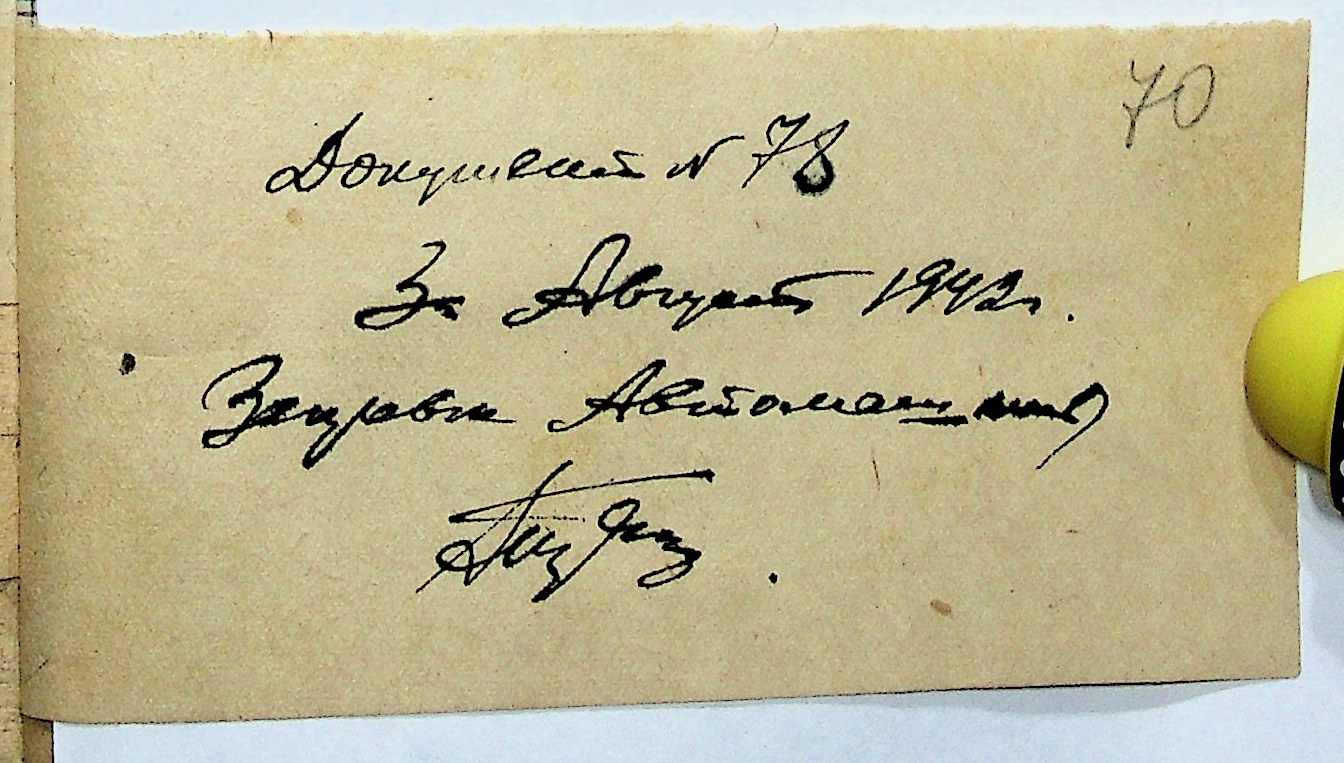 70
Документ № 78
За Август 1943г.
Заправка Автомашин